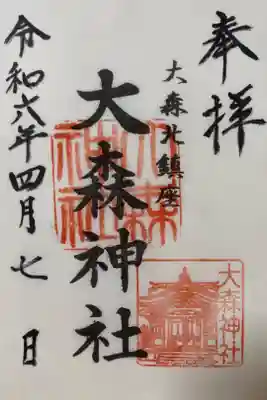 奉拝
大森北鎮座
大森神社
大森神社
大森神社
令和六年四月七日